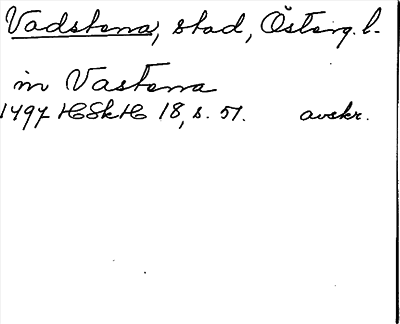 Vadstena, stad, Österg. l.
in Vastena
1497 HSkH 18, s. 51. avskr.